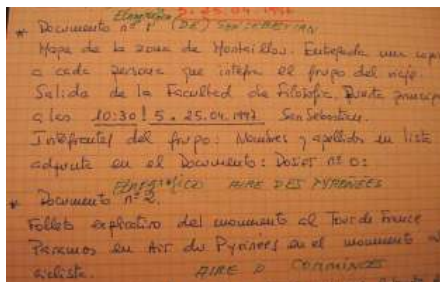 5.25.04.1997
* Documento nº 1 (DE) SAN SEBASTIAN
Mapa de la zona de Montaillou. Entregada una copia
a cada persona que integra el grupo del viaje.
Salida de la Facultad de Filosofia. Puerta principal
a las 10:30! 5. 25.04.1997. San Sebastian.
Integrantes del grupo: Nombres y apellidos en lista
adjunta en el Documento: Dosier nº 0:
AIRE DES PYRENEES
* Documento nº 2.
Folleto explicativo del monumento al Tour de France
Paramos en Air du Pyrinees en el monumento
ciclista.
AIRE D COMMINGES